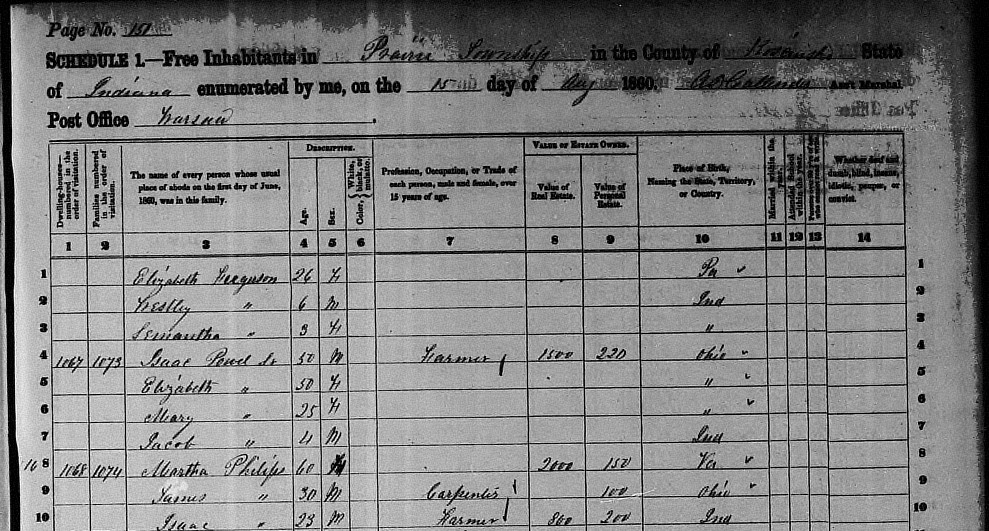 Page No. 151
SCHEDULE 1.—Free Inhabitants in Prairie Township in the County of Kosciusko State
of Indiana enumerated by me, on the 15 day of Aug 1860. Ass't Marshal.
Post Office Warsaw
Dwelling-houses—numbered in the order of visitation.
Families numbered in the order of visitation.
The name of every person whose usual place of abode on the first day of June, 1860, was in this family.
DESCRIPTION.
Age.
Sex.
Color, { White, black, or mulatto.
Profession, Occupation, or Trade of each person, male and female, over 15 years of age.
VALUE OF ESTATE OWNED.
Value of Real Estate.
Value of Personal Estate.
Place of Birth, Naming the State, Territory, or Country.
Married within the year.
Attended School within the year.
Whether deaf and dumb, blind, insane, idiotic, pauper, or convict.
1 2 3 4 5 6 7 8 9 10 11 12 13 14
1 Elizabeth Ferguson 26 F Pa 1
2 Westley " 6 M Ind 2
3 Semantha " 3 F " 3
4 1067 1073 Isaac Powel Sr 50 M Farmer 1500 220 Ohio 4
5 Elizabeth " 50 F " 5
6 Mary " 25 F " 6
7 Jacob " 4 M Ind 7
16 8 1068 1074 Martha Philips 60 F 2000 150 Va 8
9 James " 30 M Carpenter 100 Ohio 9
10 Isaac " 23 M Farmer 800 200 Ind 10